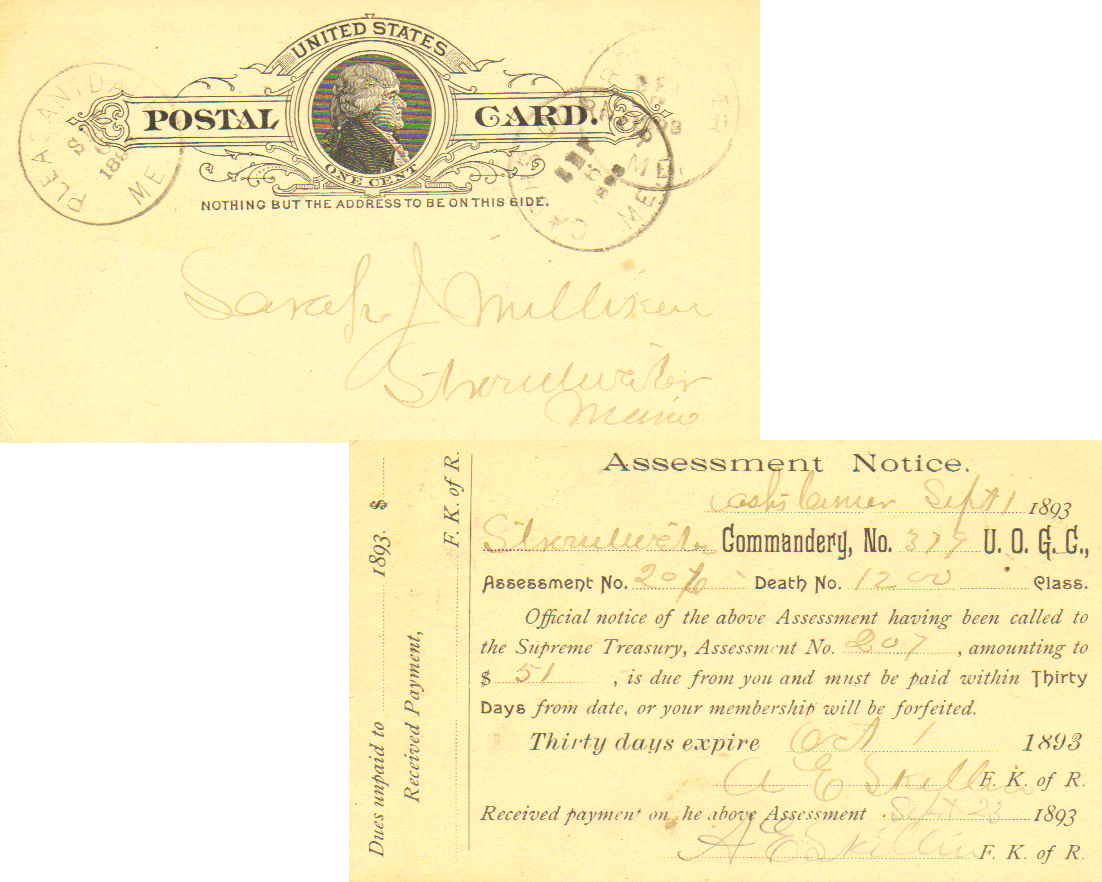 UNITED STATES
POSTAL CARD.
ONE CENT
NOTHING BUT THE ADDRESS TO BE ON THIS SIDE.
PLEASANTDA
ME
ME.
ME.
Sarah J Milliken
Stroudwater
Maine
Dues unpaid to 1893. $
Received Payment,
F. K. of R.
Assessment Notice.
Sept 1 1893
Stroudwater Commandery, No. 379 U. O. G. C.,
Assessment No. 206 Death No. 1200 Class.
Official notice of the above Assessment having been called to
the Supreme Treasury, Assessment No. 207, amounting to
$ 51, is due from you and must be paid within Thirty
Days from date, or your membership will be forfeited.
Thirty days expire Oct 1 1893
A E Skillin F. K. of R.
Received payment on he above Assessment Sept 23 1893
A E Skillin F. K. of R.